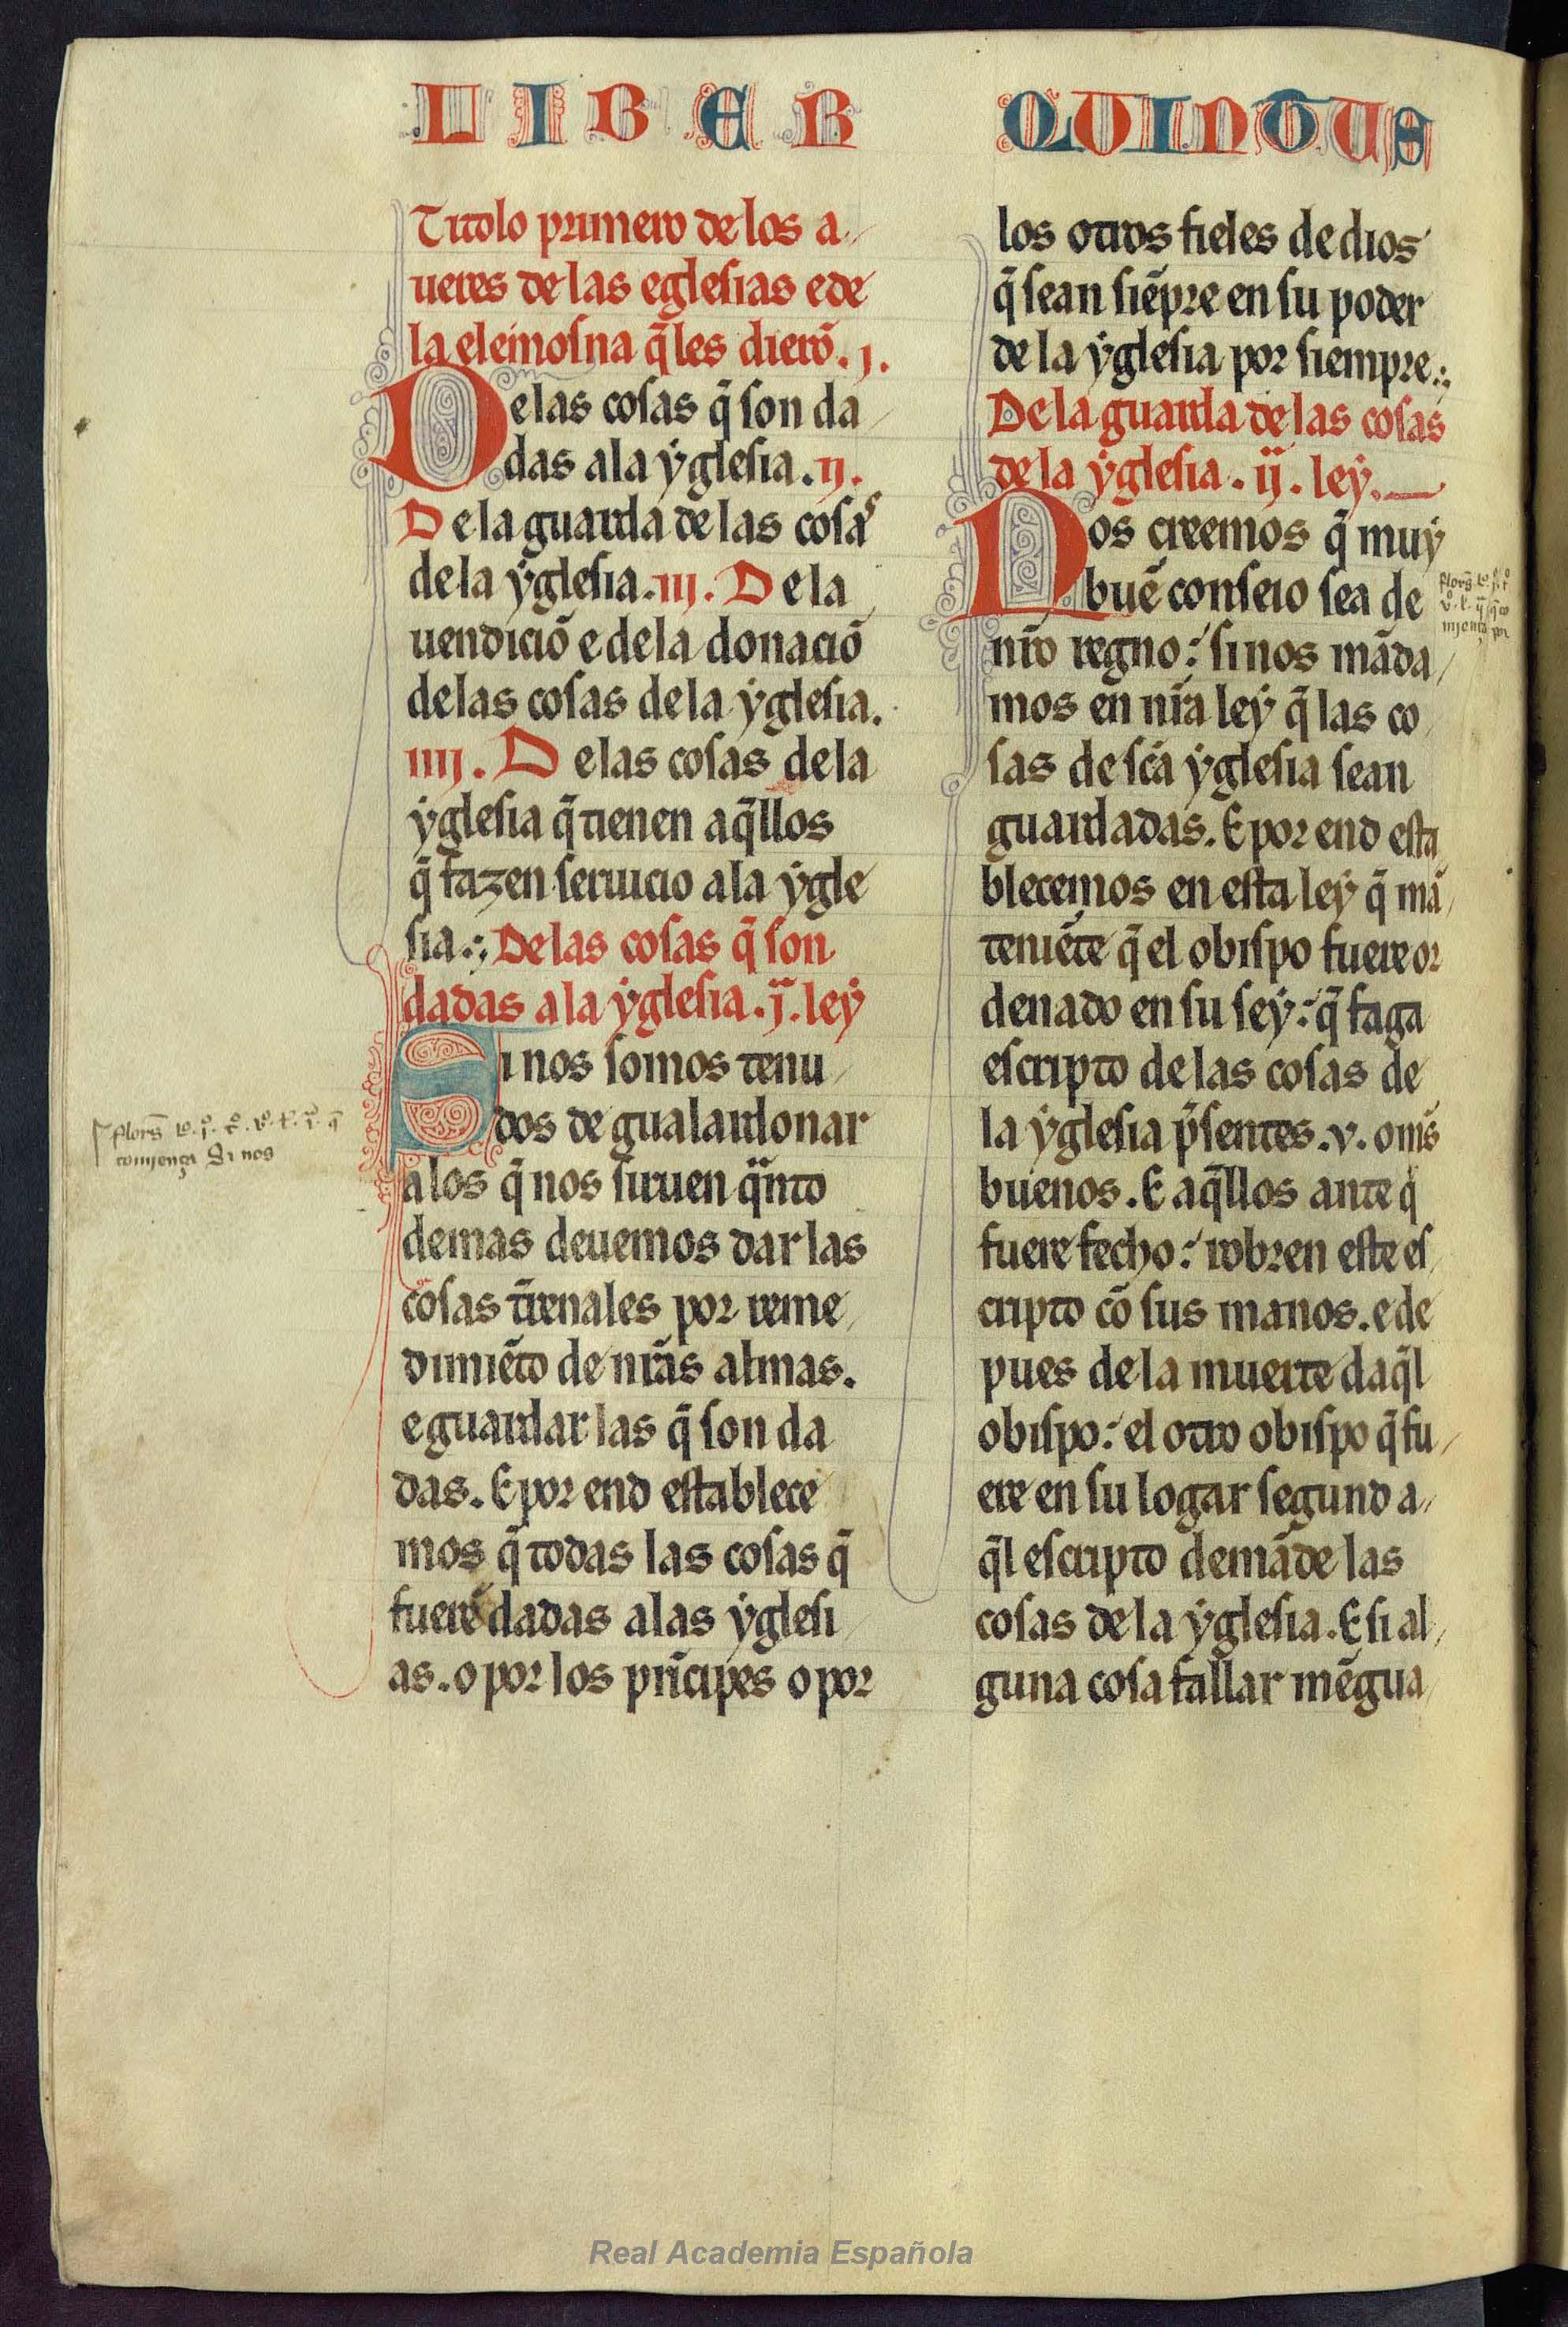 LIBER QUINTUS
Titolo primero de los a
ueres de las eglesias e de
la elemosna q̃ les dierõ. j.
De las cosas q̃ son da
das a la ẏglesia. ij.
De la guarda de las cosas
de la ẏglesia. iij. De la
uendiciõ e de la donaciõ
de las cosas de la ẏglesia.
iiij. De las cosas de la
ẏglesia q̃ tienen aq̃llos
q̃ fazen seruicio a la ẏgle
sia. De las cosas q̃ son
dadas a la ẏglesia. j. leẏ
Si nos somos tenu
dos de gualardonar
a los q̃ nos siruen quãto
demas deuemos dar las
cosas t̃renales por reme
dimiẽto de nr̃as almas.
e guardar las q̃ son da
das. E por end establece
mos q̃ todas las cosas q̃
fuerẽ dadas a las ẏglesi
as. o por los prĩcipes o por
los otros fieles de dios
q̃ sean siẽpre en su poder
de la ẏglesia por siempre.
De la guarda de las cosas
de la ẏglesia. ij. leẏ.
Nos creemos q̃ muẏ
buẽ conseio sea de
nr̃o regno: si nos mãda
mos en nr̃a leẏ q̃ las co
sas de sc̃a ẏglesia sean
guardadas. E por end esta
blecemos en esta leẏ q̃ mã
teniẽte q̃ el obispo fuere or
denado en su seẏ: q̃ faga
escripto de las cosas de
la ẏglesia p̃sentes .v. om̃s
buenos. E aq̃llos ante q̃
fuere fecho: robren este es
cripto cõ sus manos. e de
pues de la muerte daq̃l
obispo: el otro obispo q̃ fu
ere en su logar segund a
q̃l escripto demãde las
cosas de la ẏglesia. E si al
guna cosa fallar mẽgua
comjença Si nos
Real Academia Española